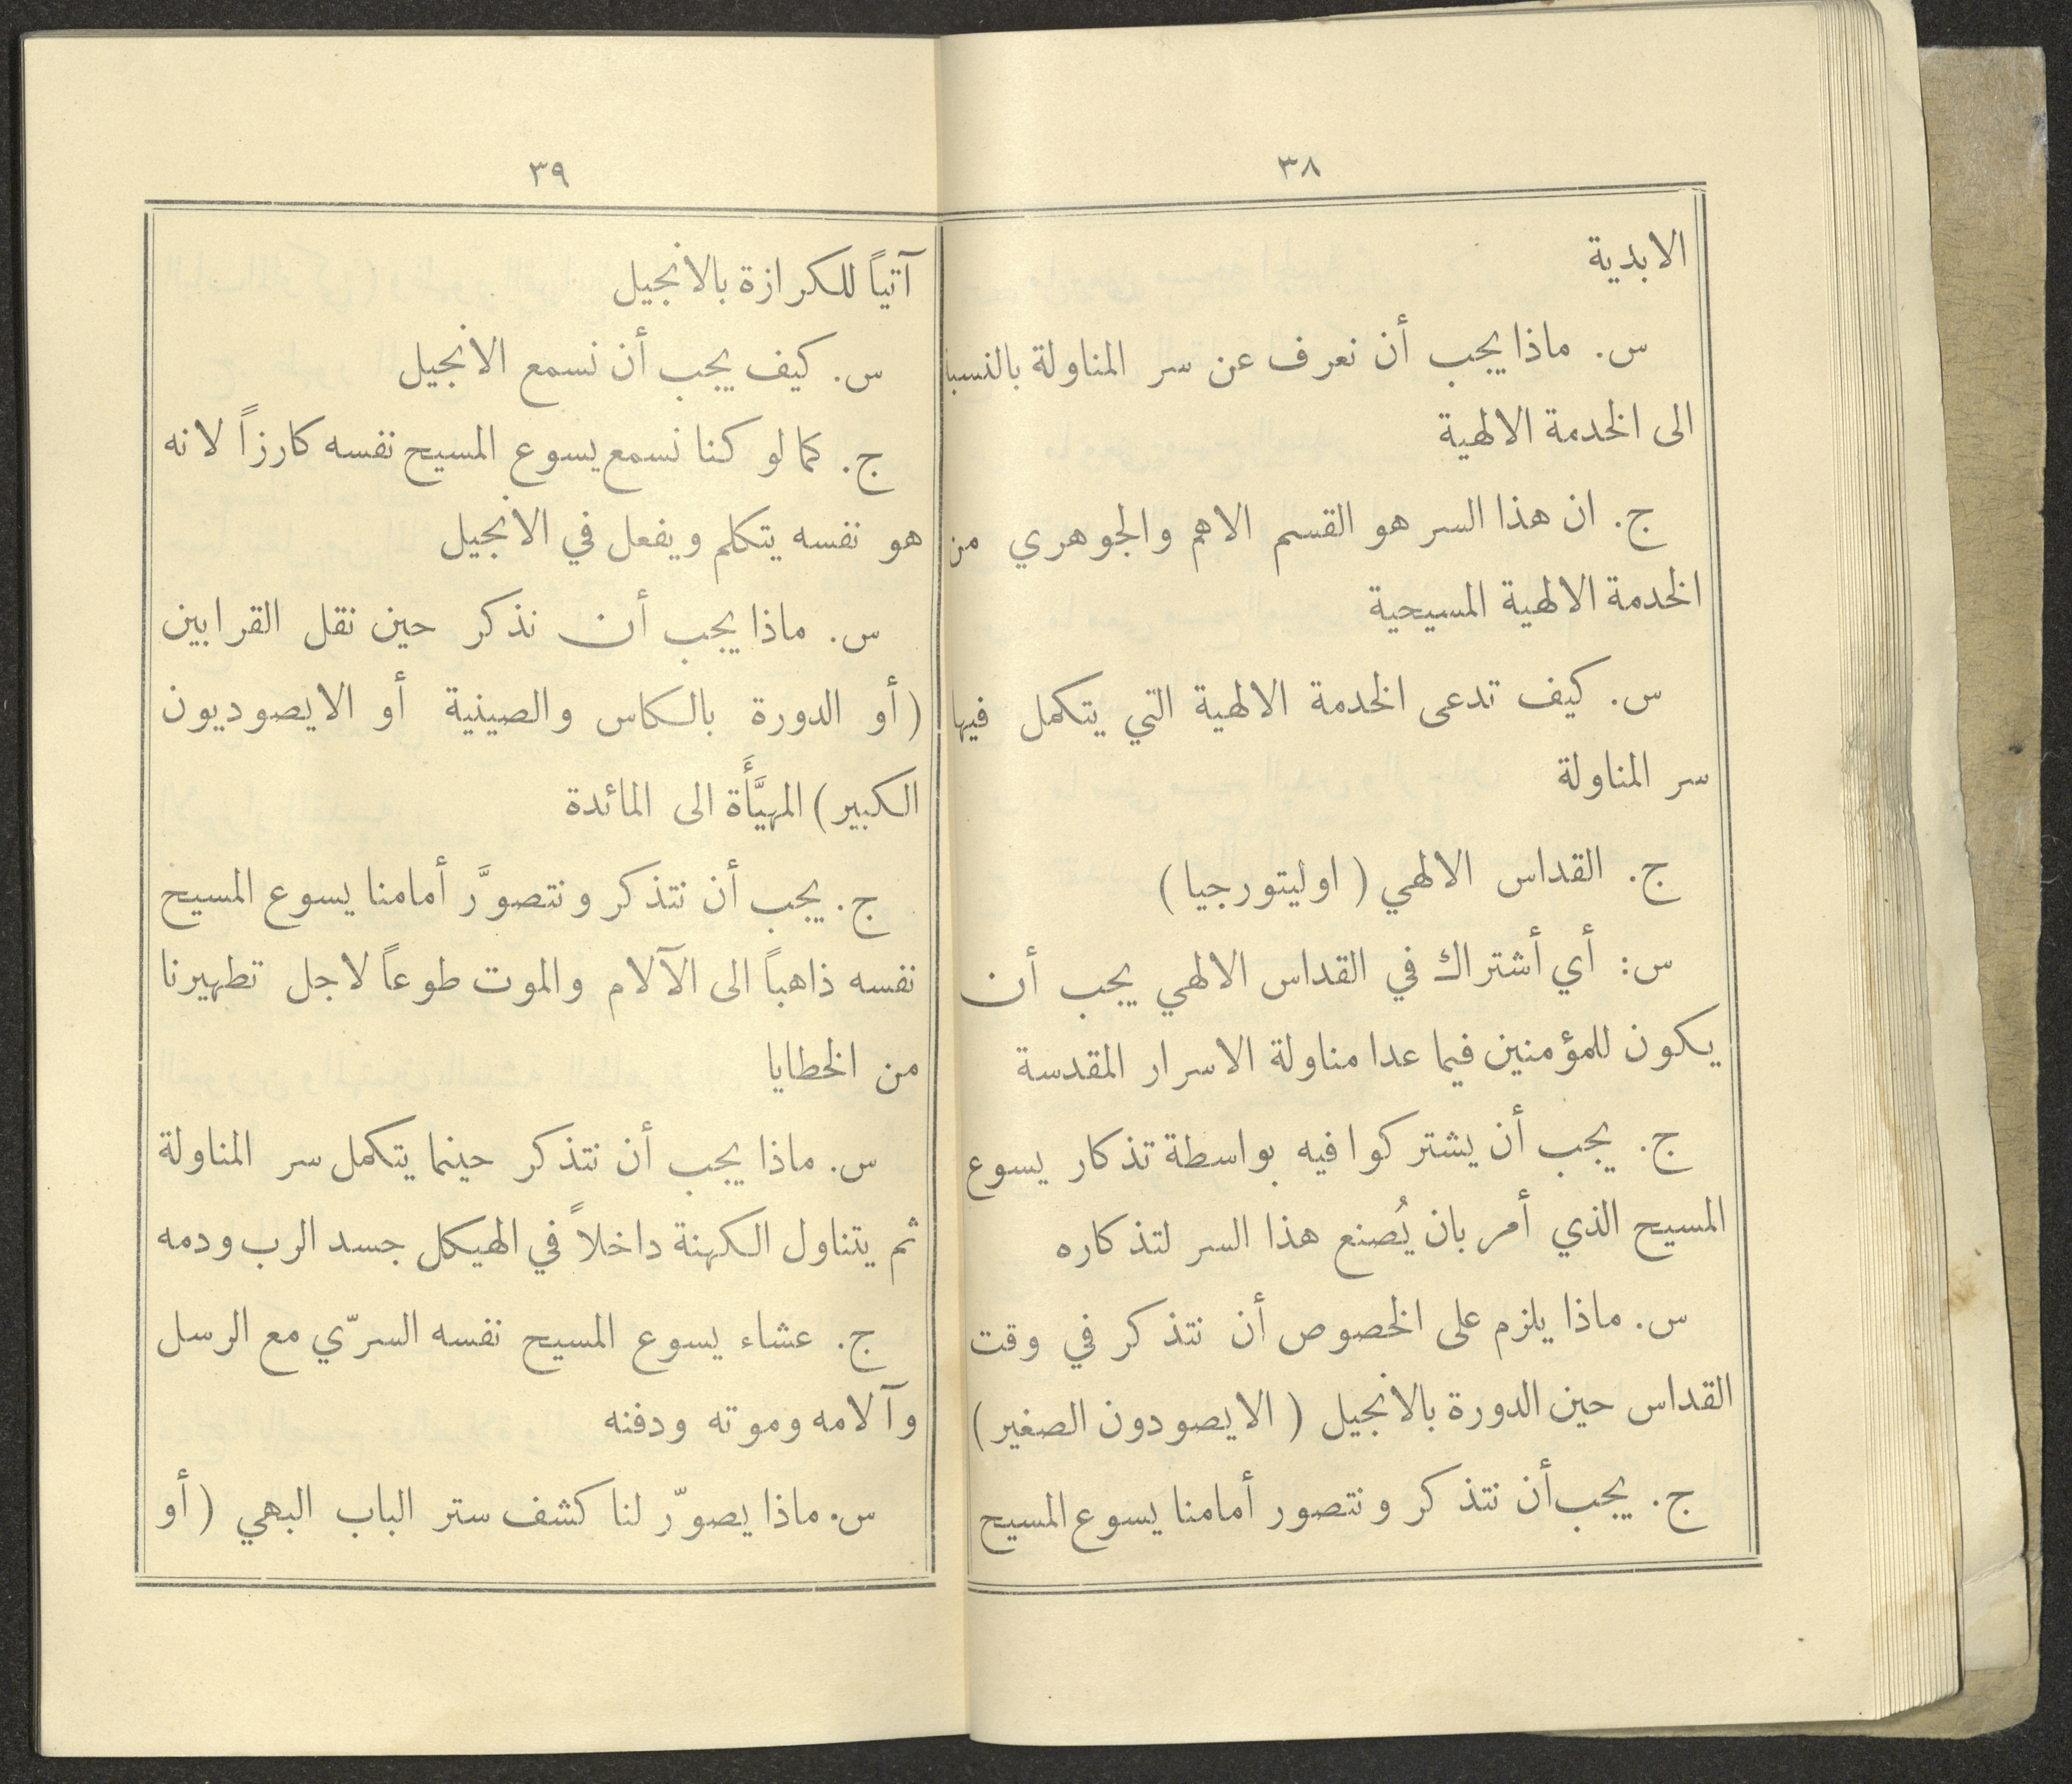 ٣٨
الابدية
س. ماذا يجب أن نعرف عن سر المناولة
الى الخدمة الالهية
ج. ان هذا السر هو القسم الاهم والجوهري من
الخدمة الالهية المسيحية
س. كيف تدعى الخدمة الالهية التي يتكمل فيها
سر المناولة
ج. القداس الالهي (اوليتورجيا)
س: أي أشتراك في القداس الالهي يجب أن
يكون للمؤمنين فيما عدا مناولة الاسرار المقدسة
ج. يجب أن يشتركوا فيه بواسطة تذكار يسوع
المسيح الذي أمر بان يُصنع هذا السر لتذكاره
س. ماذا يلزم على الخصوص أن نتذكر في وقت
القداس حين الدورة بالانجيل (الايصودون الصغير)
ج. يجب أن نتذكر ونتصور أمامنا يسوع المسيح
٣٩
آتياً للكرازة بالانجيل
س. كيف يجب أن نسمع الانجيل
ج. كما لو كنا نسمع يسوع المسيح نفسه كارزاً لانه
هو نفسه يتكلم ويفعل في الانجيل
س. ماذا يجب أن نذكر حين نقل القرابين
(أو الدورة بالكاس والصينية أو الايصوديون
الكبير) المهيَّأَة الى المائدة
ج. يجب أن نتذكر ونتصوَّر أمامنا يسوع المسيح
نفسه ذاهباً الى الآلام والموت طوعاً لاجل تطهيرنا
من الخطايا
س. ماذا يجب أن نتذكر حينما يتكمل سر المناولة
ثم يتناول الكهنة داخلاً في الهيكل جسد الرب ودمه
ج. عشاء يسوع المسيح نفسه السرّي مع الرسل
وآلامه وموته ودفنه
س. ماذا يصوّر لنا كشف ستر الباب البهي (أو